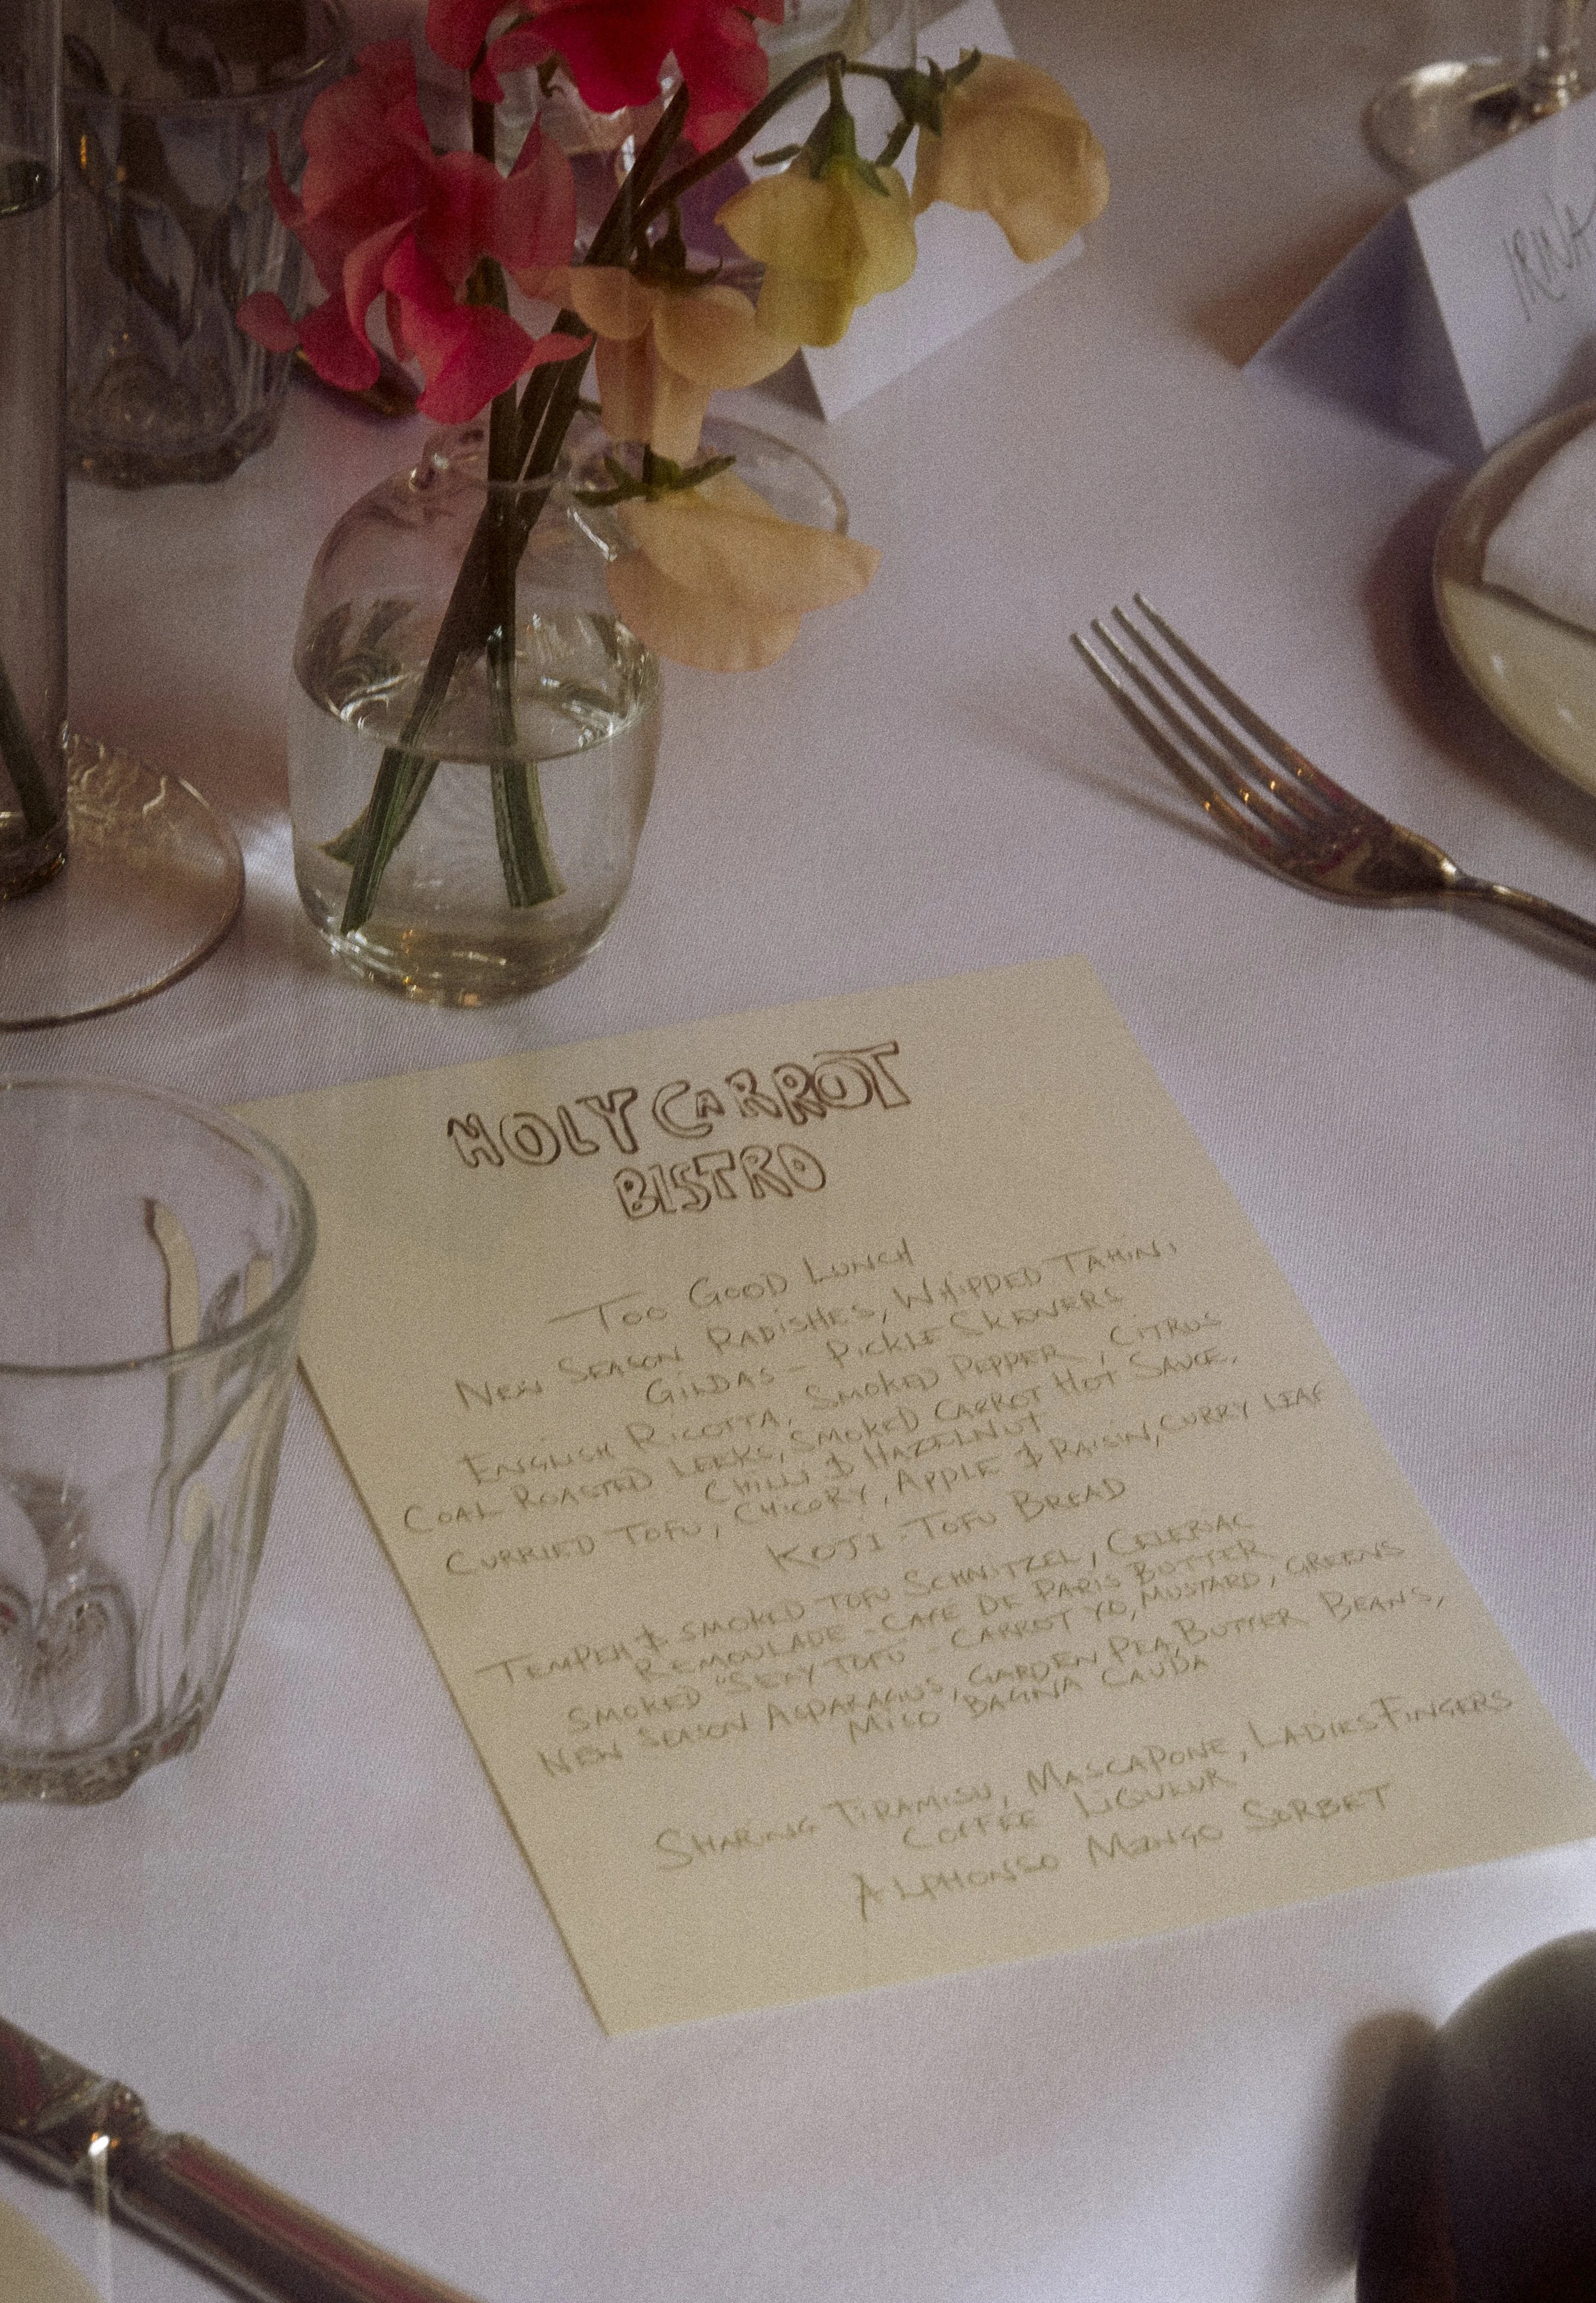 IRINA
HOLY CARROT
BISTRO
TOO GOOD LUNCH
NEW SEASON RADISHES, WHIPPED TAHINI
GILDAS - PICKLE SKEWERS
ENGLISH RICOTTA, SMOKED PEPPER, CITRUS
COAL ROASTED LEEKS, SMOKED CARROT HOT SAUCE,
CHILLI & HAZELNUT
CURRIED TOFU, CHICORY, APPLE & RAISIN, CURRY LEAF
KOJI - TOFU BREAD
TEMPEH & SMOKED TOFU SCHNITZEL, CELERIAC
REMOULADE - CAFE DE PARIS BUTTER
SMOKED "SEXY TOFU" - CARROT YO, MUSTARD, GREENS
NEW SEASON ASPARAGUS, GARDEN PEA, BUTTER BEANS,
MISO BAGNA CAUDA
SHARING TIRAMISU, MASCAPONE, LADIES FINGERS
COFFEE LIQUEUR
ALPHONSO MANGO SORBET